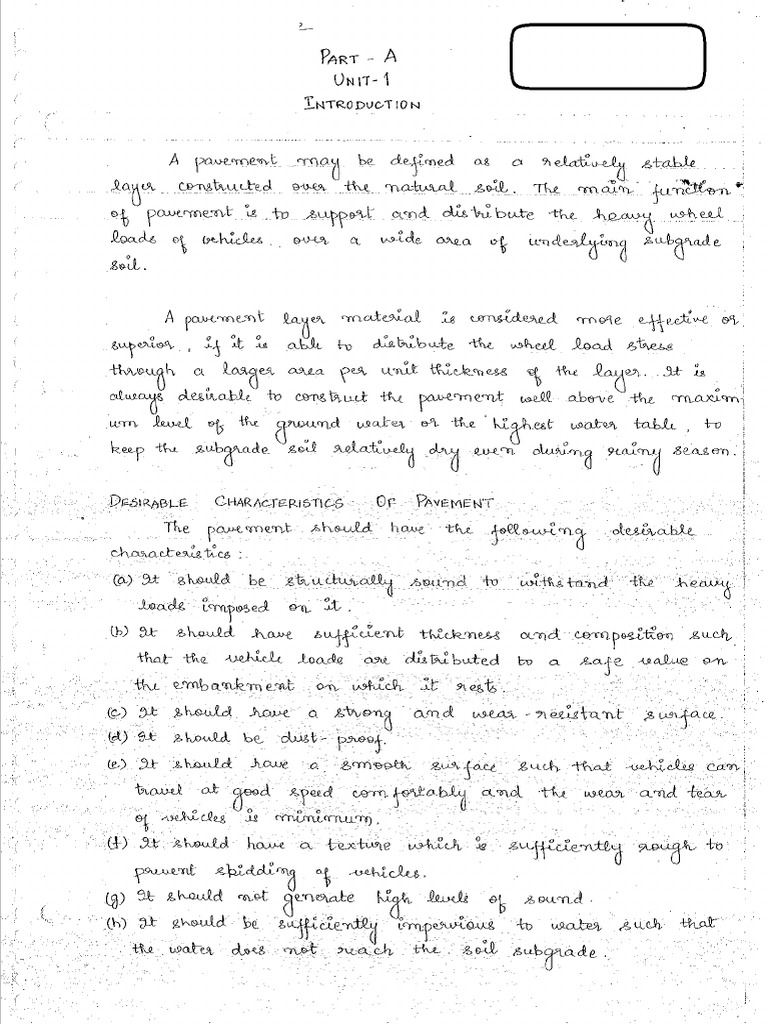 2
PART - A
UNIT-1
INTRODUCTION
A pavement may be defined as a relatively stable
layer constructed over the natural soil. The main function
of pavement is to support and distribute the heavy wheel
loads of vehicles over a wide area of underlying subgrade
soil.
A pavement layer material is considered more effective or
superior, if it is able to distribute the wheel load stress
through a larger area per unit thickness of the layer. It is
always desirable to construct the pavement well above the maxim
um level of the ground water or the highest water table, to
keep the subgrade soil relatively dry even during rainy season.
DESIRABLE CHARACTERISTICS OF PAVEMENT
The pavement should have the following desirable
characteristics:
(a) It should be structurally sound to withstand the heavy
loads imposed on it.
(b) It should have sufficient thickness and composition such
that the vehicle loads are distributed to a safe value on
the embankment on which it rests.
(c) It should have a strong and wear-resistant surface.
(d) It should be dust-proof.
(e) It should have a smooth surface such that vehicles can
travel at good speed comfortably and the wear and tear
of vehicles is minimum.
(f) It should have a texture which is sufficiently rough to
prevent skidding of vehicles.
(g) It should not generate high levels of sound.
(h) It should be sufficiently impervious to water such that
the water does not reach the soil subgrade.